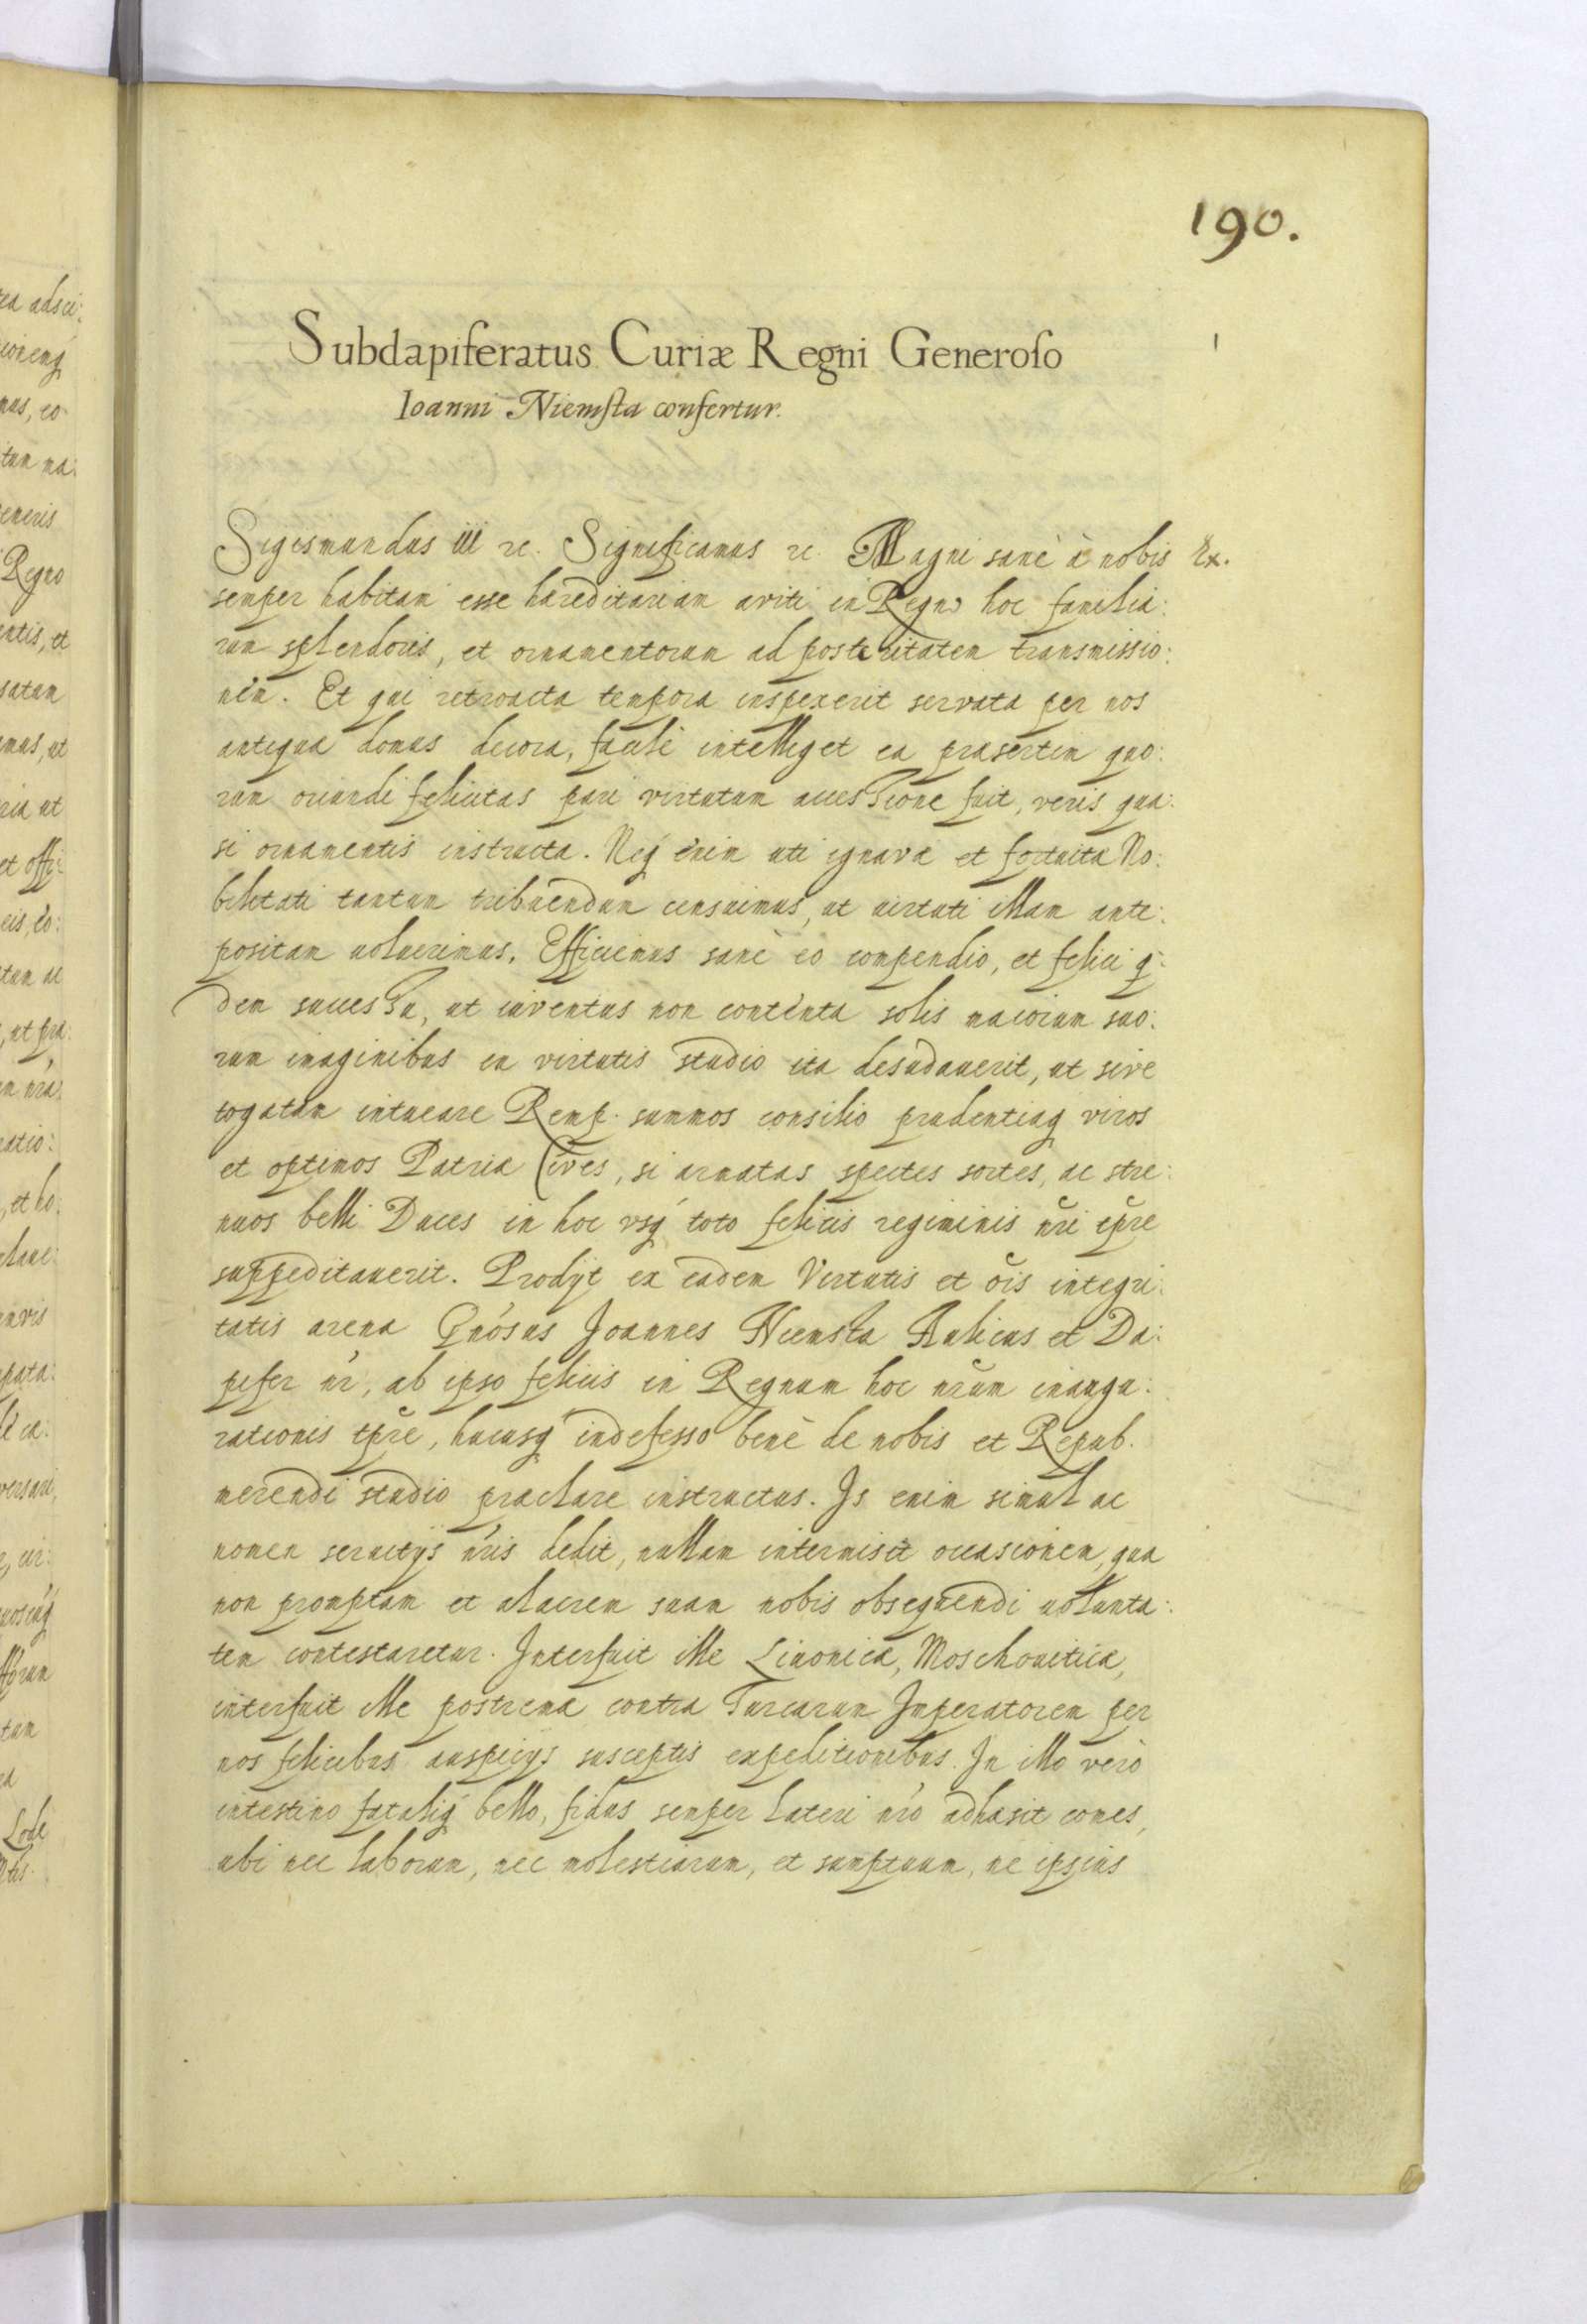 190.
Subdapiferatus Curiæ Regni Generoso
Ioanni Niemsta confertur.
Sigismundus III etc. Significamus etc. Magni sanè à nobis Ex.
semper habitam esse hæreditariam aviti in Regno hoc familia:
rum splendoris, et ornamentorum ad posteritatem transmissio:
nem. Et qui retroacta tempora inspexerit servata per nos
antiqua domus decora, facilè intelliget ea præsertim quo:
rum ornandi felicitas pari virtutum accessione fuit, veris qua:
si ornamentis instructa. Neq́ enim uti ignavæ et fortuitæ No:
bilitati tantum tribuendum censuimus, ut uirtuti illam ante:
positam uoluerimus. Efficimus sanè eo compendio, et felici q̃:
dem successu, ut iuventus non contenta solis maiorum suo:
rum imaginibus in virtutis studio ita desudauerit, ut sive
togatam intueare Remp. summos consilio prudentiaq viros
et optimos Patriæ Cives, si armatas spectes sortes, ac stre:
nuos belli Duces in hoc vsq́ toto felicis regiminis nr̃i tp̃re
suppeditauerit. Prodijt ex eadem Virtutis et õis integri:
tatis arena Gnósus Joannes Niemsta Aulicus et Da:
pifer nr̃, ab ipso felicis in Regnum hoc nr̃um inaugu:
rationis tp̃re, hucusq́ indefesso benè de nobis et Repub.
merendi studio præclare instructus. Is enim simul ac
nomen seruitijs nr̃is dedit, nullam intermisit occasionem, qua
non promptam et alacrem suam nobis obsequendi uolunta:
tem contestaretur. Interfuit ille Liuonicæ, Moschouiticæ,
interfuit ille postremæ contra Turcarum Imperatorem per
nos felicibus auspicijs susceptis expeditionibus. In illo verò
intestino fataliq́ bello, fidus semper lateri nr̃o adhæsit comes,
ubi nec laborum, nec molestiarum, et sumptuum, ne ipsius